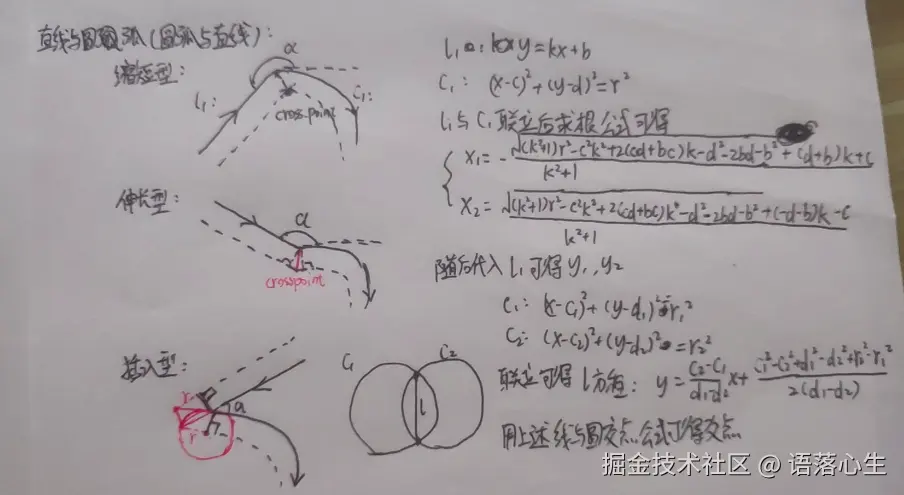 直线与圆弧(圆弧与直线):
缩短型:
α
l₁:
C₁:
cross point
伸长型:
α
crosspoint
插入型:
r
α
r
C₁
C₂
l
l₁: y=kx+b
C₁: (x-c)²+(y-d)²=r²
l₁与C₁联立后求根公式可得
x₁=-(√((k²+1)r²-c²k²+2(cd+bc)k-d²-2bd-b²+(d+b)k+c))/(k²+1)
x₂=(√((k²+1)r²-c²k²+2(cd+bc)k-d²-2bd-b²+(-d-b)k-c))/(k²+1)
随后代入l₁可得y₁,y₂
C₁: (x-c₁)²+(y-d₁)²=r₁²
C₂: (x-c₂)²+(y-d₂)²=r₂²
联立可得l方程: y=(c₂-c₁)/(d₁-d₂)x+(c₁²-c₂²+d₁²-d₂²+r₂²-r₁²)/(2(d₁-d₂))
用上述线与圆交点公式可得交点
掘金技术社区 @ 语落心生